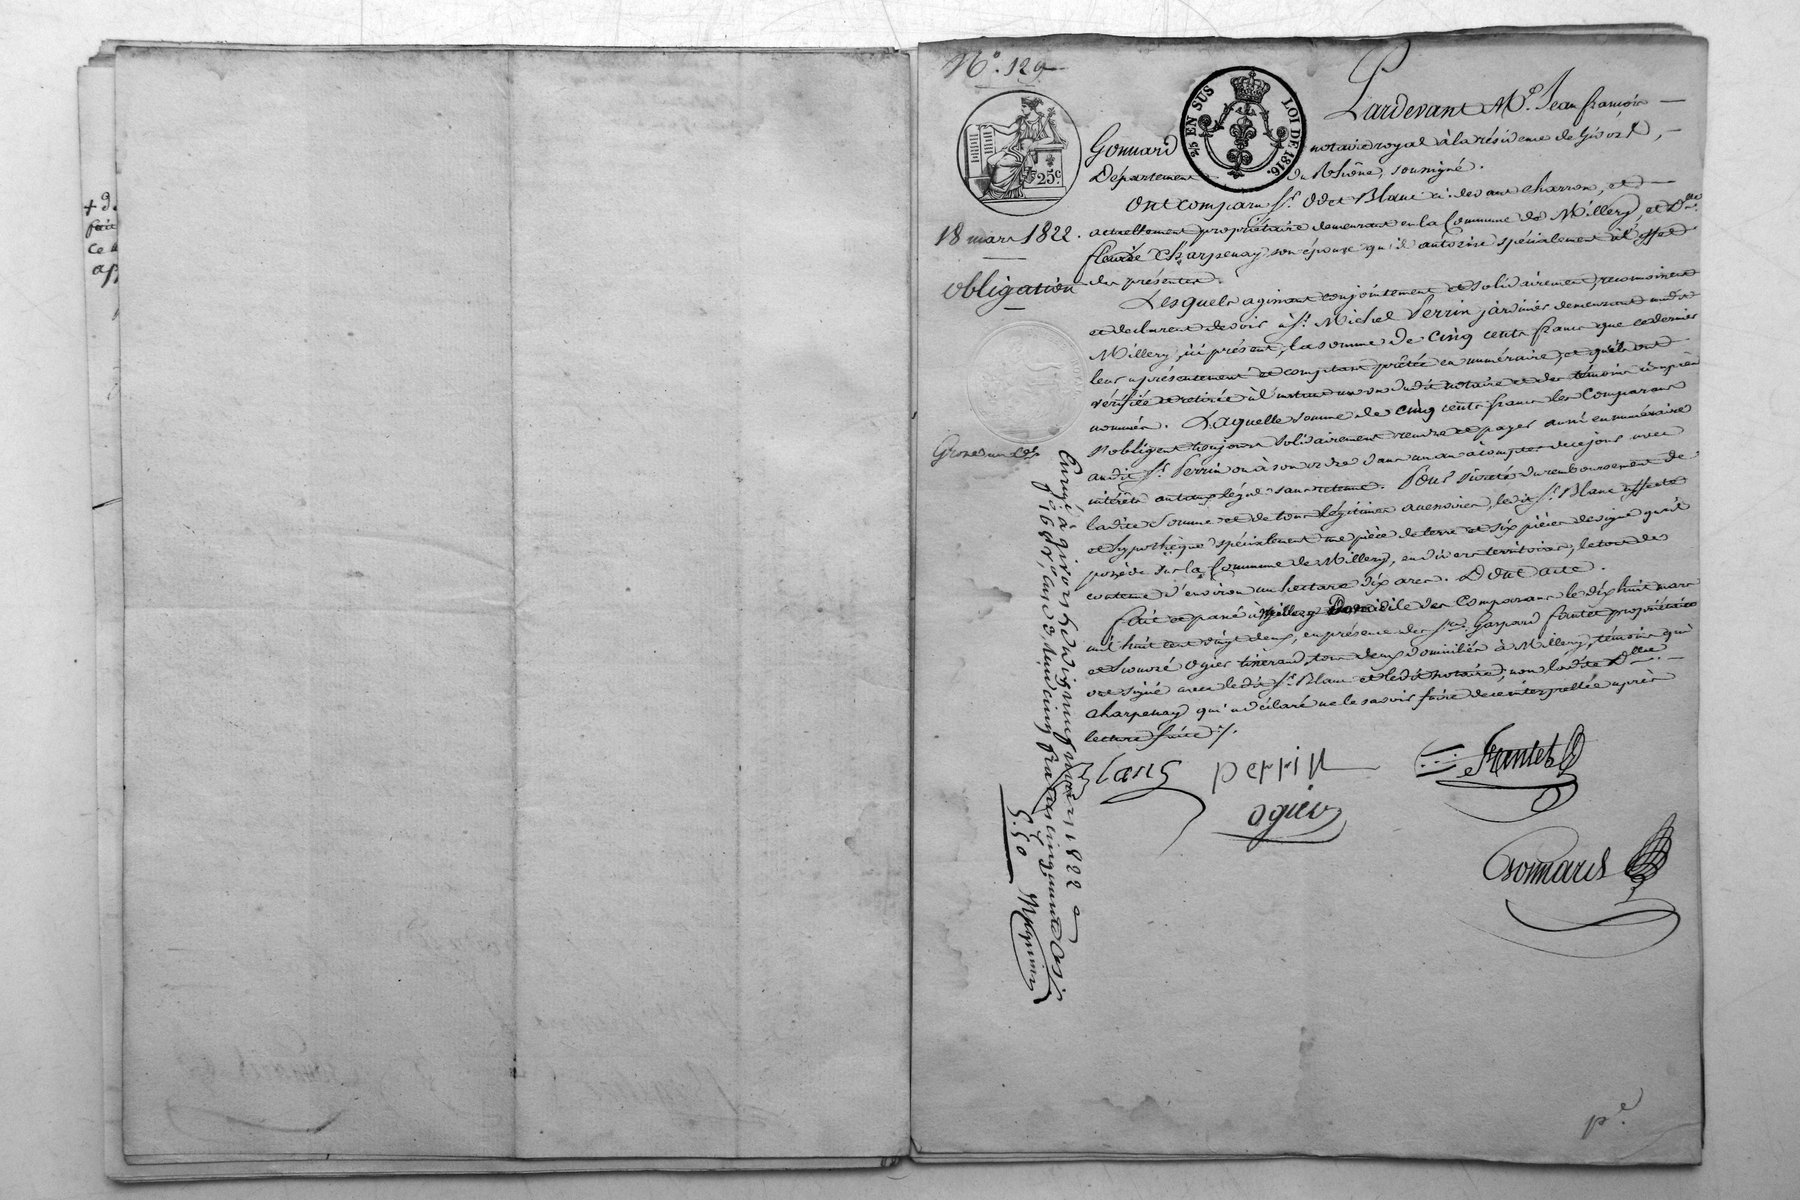 N.° 129
2/5 EN SUS
LOI DE 1816.
25c
Pardevant M.e Jean françois
Gonnard notaire royal à la résidence de Givors,
Département du Rhône, soussigné.
Ont comparu S.r Odet Blanc ci-devant charron, et
18 mars 1822.
actuellement propriétaire demeurant en la Commune de Millery, et D.lle
fleurie Charpenay son épouse qu'il autorise spécialement à l'effet
obligation
des présentes.
Lesquels agissant conjointement et solidairement, reconnoissent
et déclarent devoir à S.r Michel Perrin jardinier demeurant audit
Millery, ici présent, la somme de cinq cents francs que ce dernier
leur a présentement et comptant prêtée en numéraire, et qu'ils ont
vérifiée et retirée à l'instant au vu dudit notaire et des témoins ci-après
nommés. Laquelle somme de cinq cents francs les Comparans
s'obligent toujours solidairement rendre et payer aussi en numéraire
Grosse
audit S.r Perrin ou à son ordre dans un an à compter de ce jour avec
intérêts au taux légal sans retenue. Pour sûreté du remboursement de
ladite somme et de tous légitimes accessoires, ledit S.r Blanc affecte
et hypothèque spécialement une pièce de terre et six pièces de vigne qu'il
possède sur la Commune de Millery, en divers territoires, le tout de
contenue d'environ un hectare dix ares. Dont acte.
fait et passé à Millery Domicile des Comparans le dix huit mars
mil huit cent vingt deux, en présence des S.rs Gaspard fantet propriétaire
et honoré Ogier tisserand, tous deux domiciliés à Millery, témoins qui
ont signé avec ledit S.r Blanc et ledit notaire, non ladite D.lle
Charpenay qui a déclaré ne le savoir faire de ce interpellée après
lecture faite ./.
Blanc
perrin
ogier
Gonnard
Enreg.é à givors le dix neuf mars 1822
cinq francs cinquante c.es
5.50
p.e